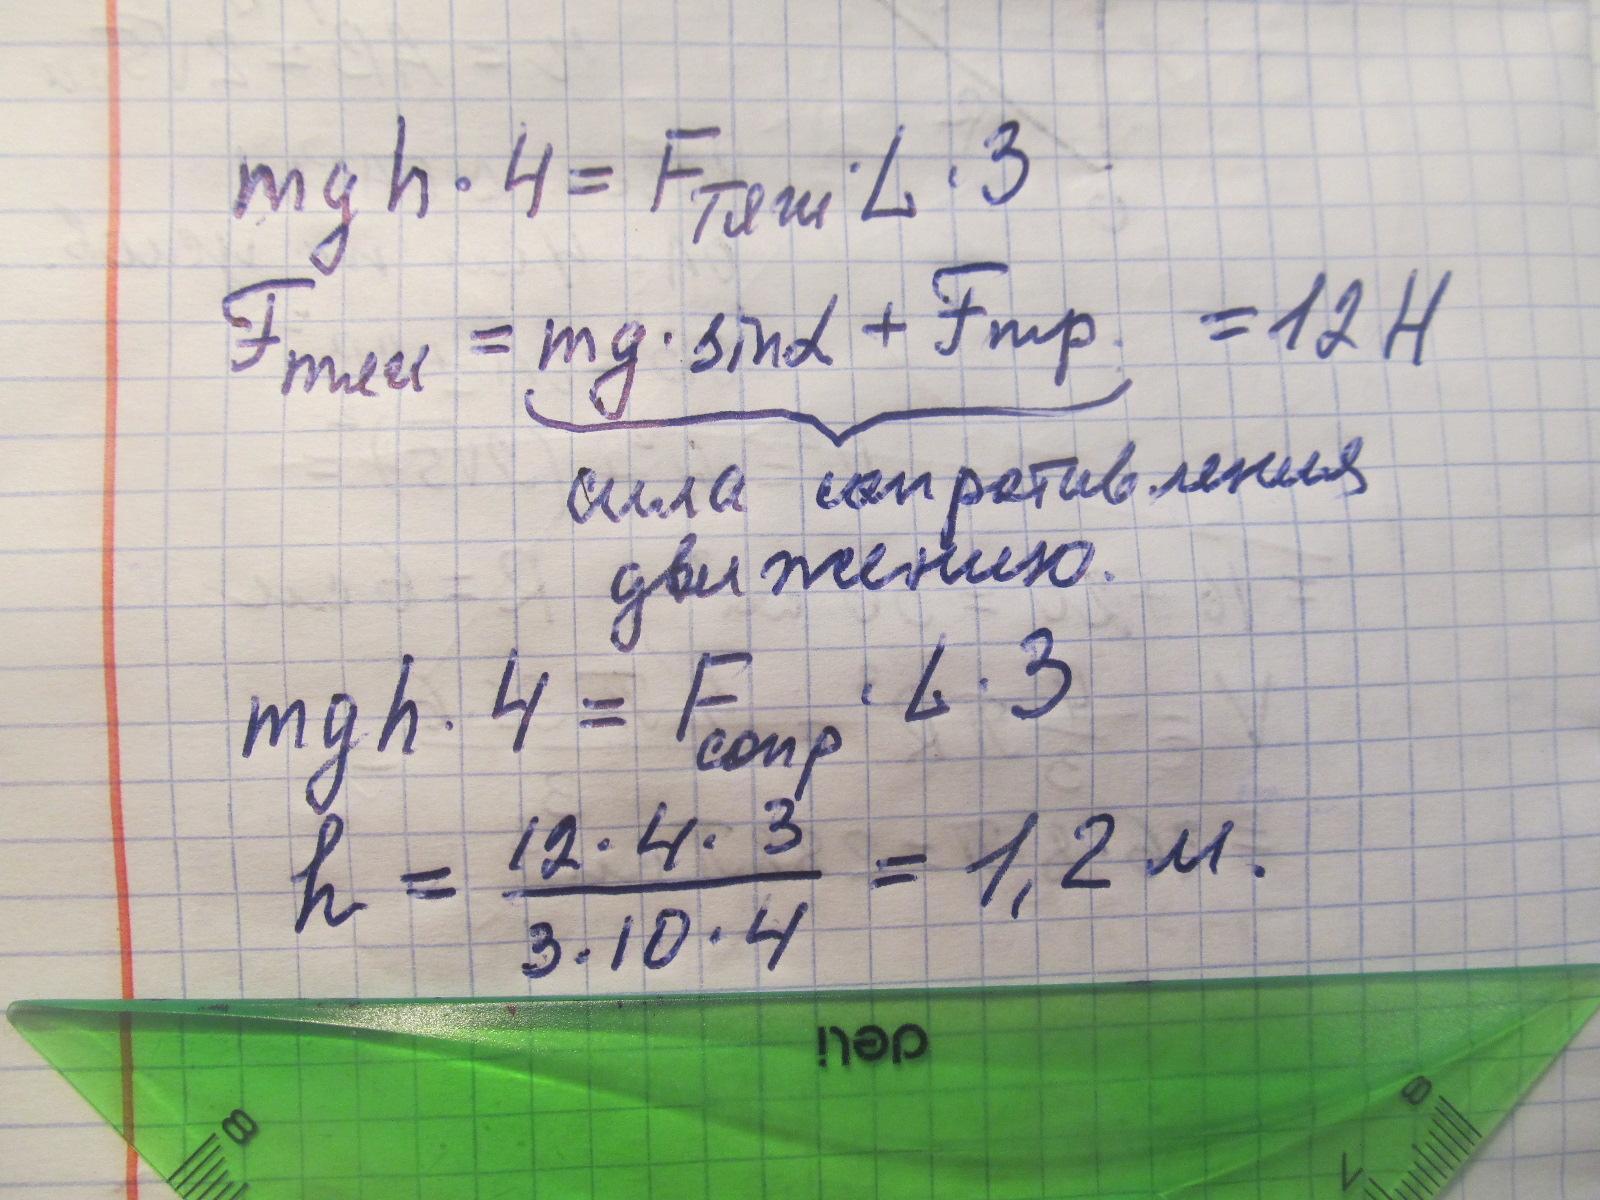 mgh · 4 = Fтяж · L · 3
Fтяж = mg · sinα + Fтр. = 12 Н
сила сопротивления
движению.
mgh · 4 = Fсопр · L · 3
h = 12 · 4 · 3 / 3 · 10 · 4 = 1,2 м.
deli
8
8
7